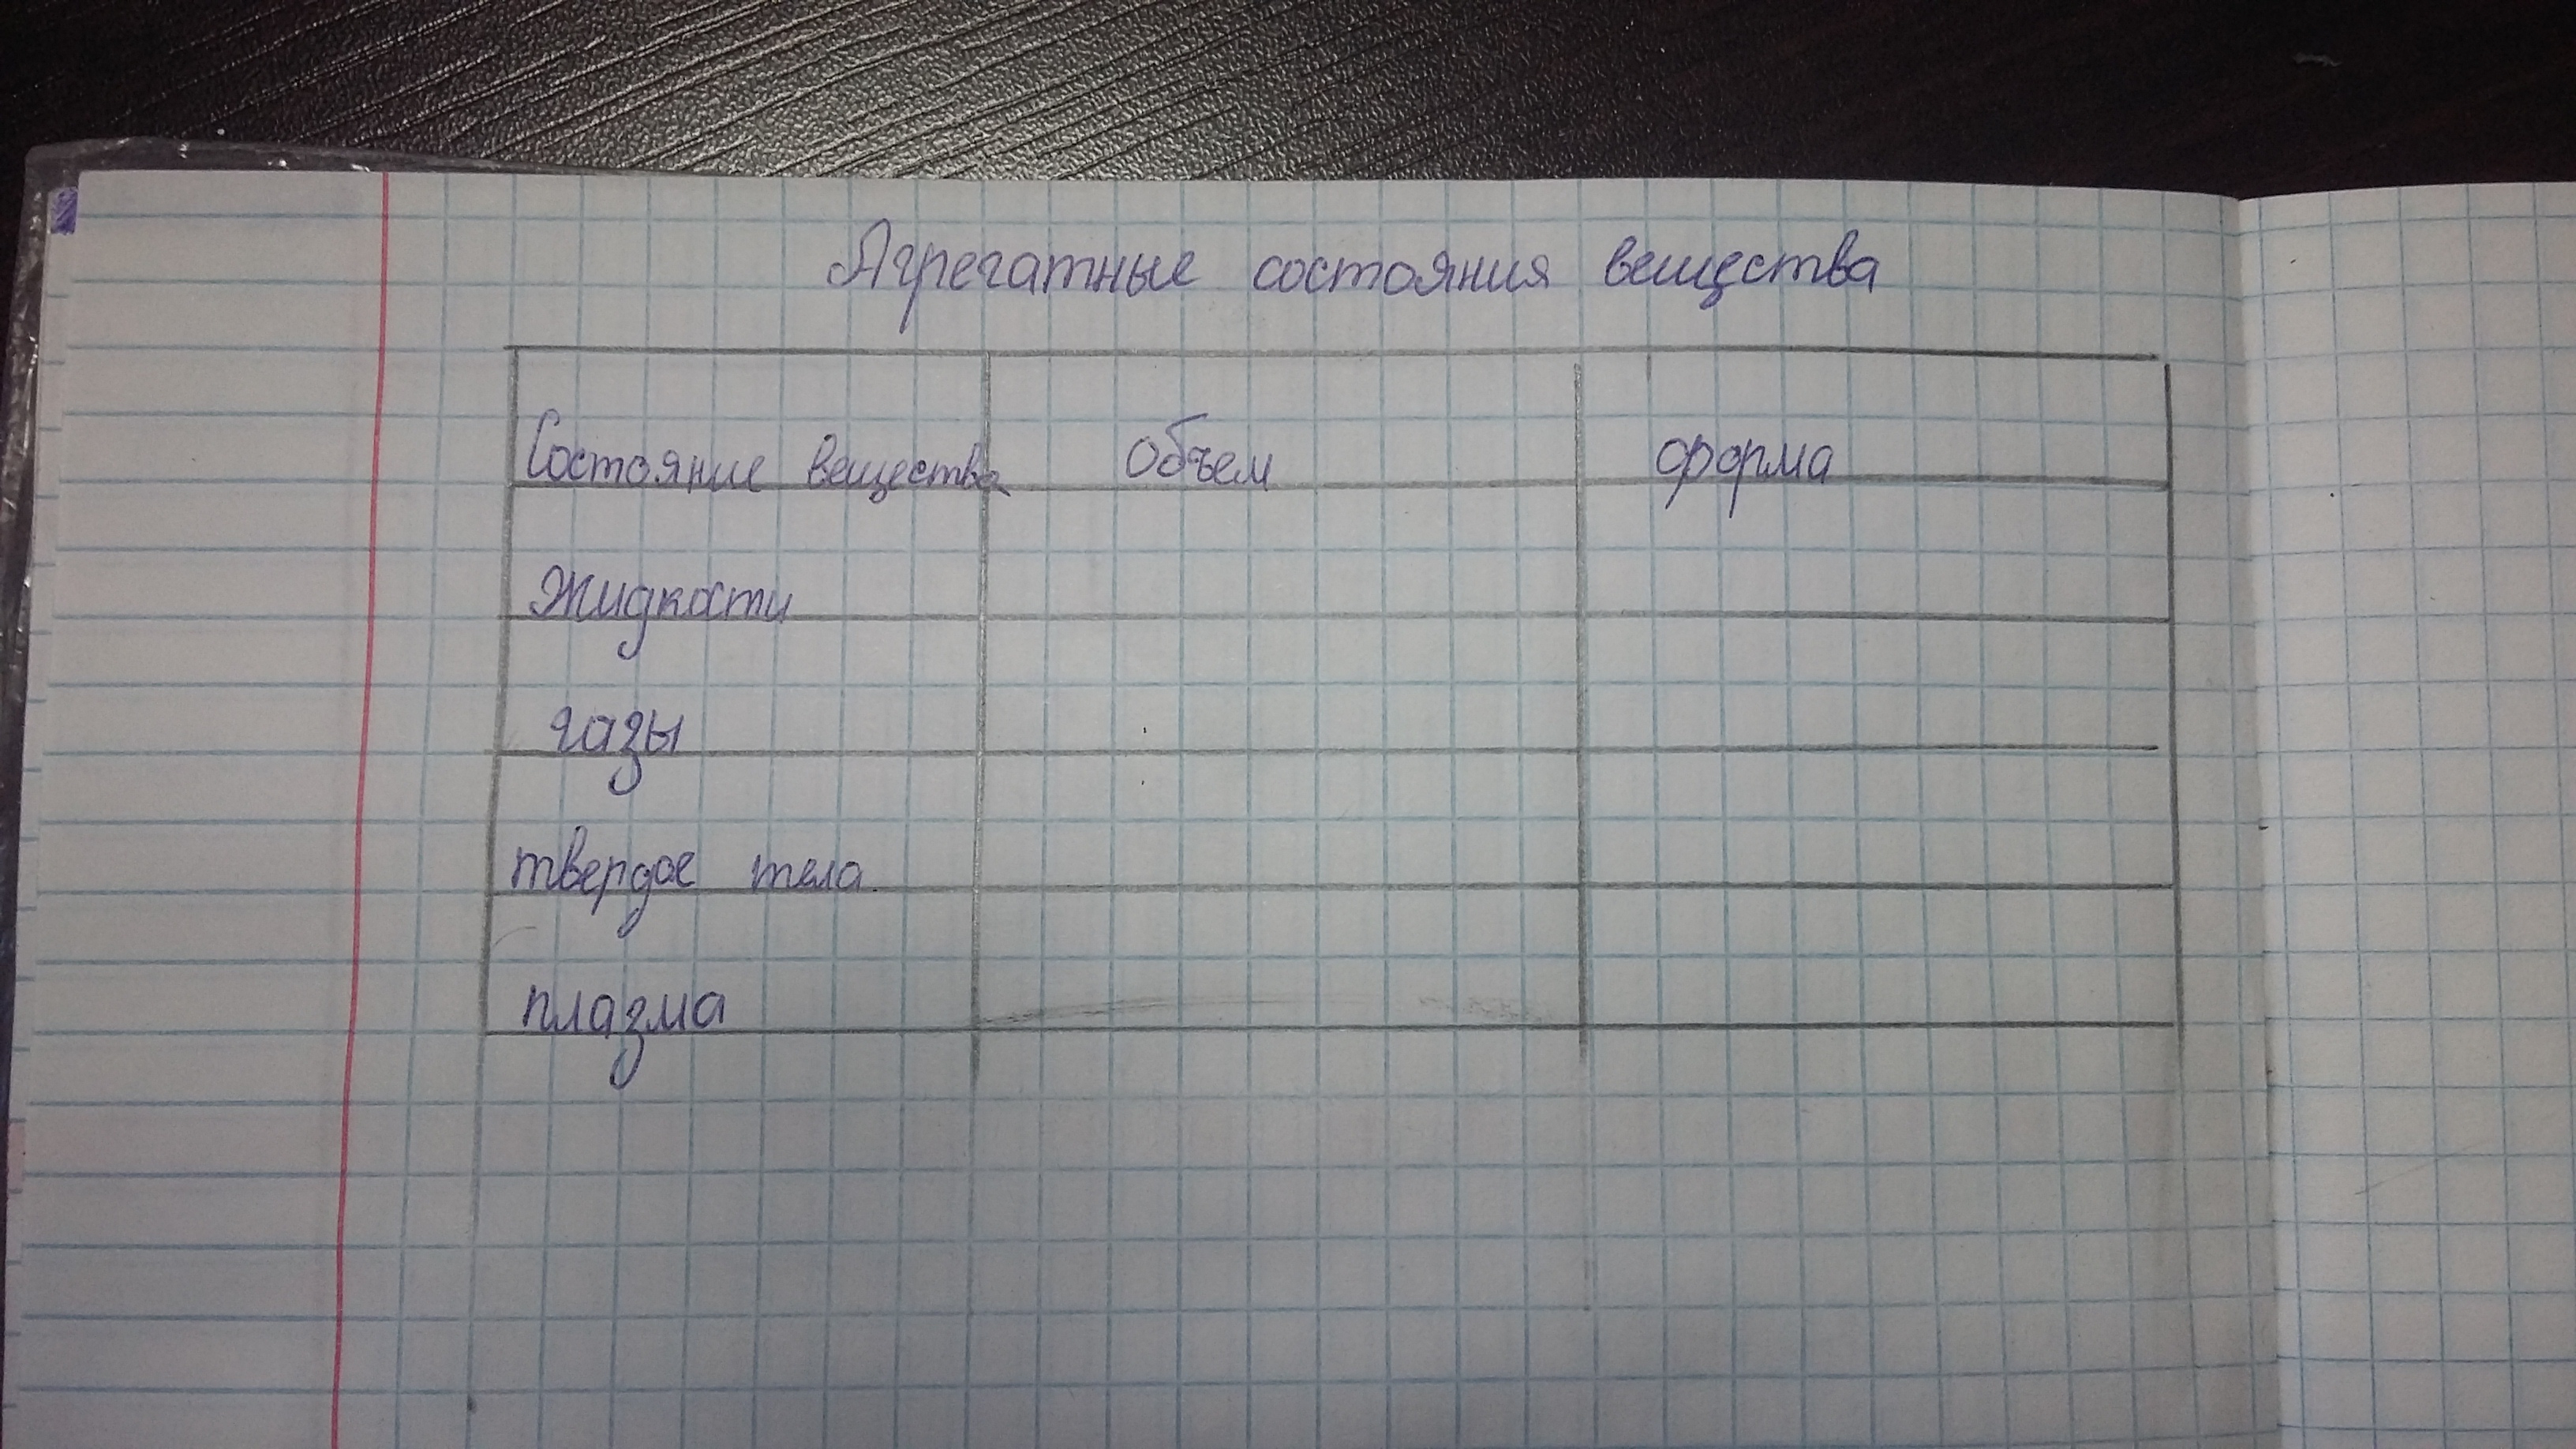 Агрегатные состояния вещества
Состояние вещества Объем форма
Жидкости
газы
твердое тела.
плазма